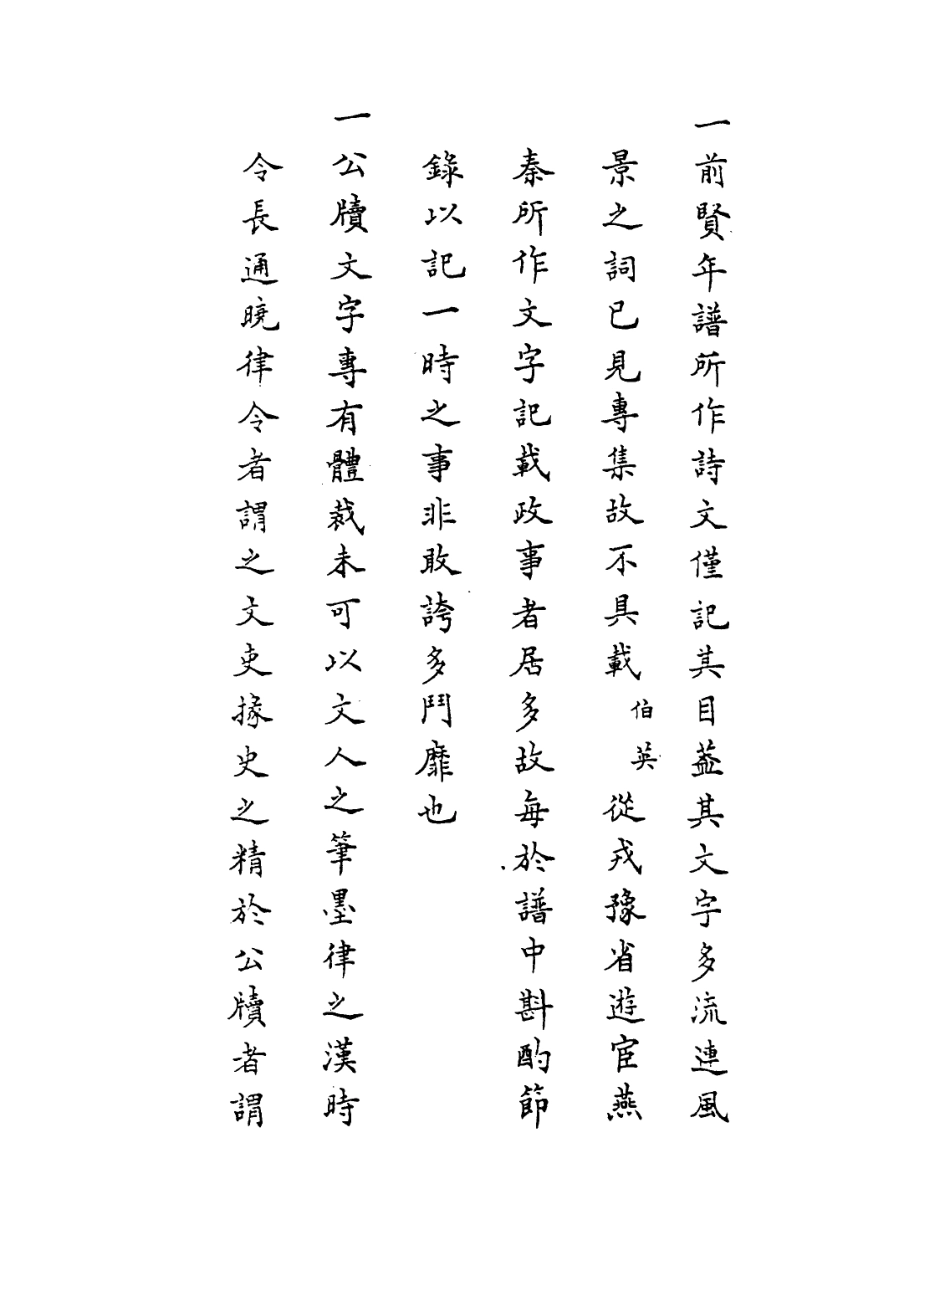 一前賢年譜所作詩文僅記其目葢其文字多流連風
景之詞已見專集故不具載伯英從戎豫省遊宦燕
秦所作文字記載政事者居多故每於譜中斟酌節
錄以記一時之事非敢誇多鬥靡也
一公牘文字專有體裁未可以文人之筆墨律之漢時
令長通曉律令者謂之文吏掾史之精於公牘者謂